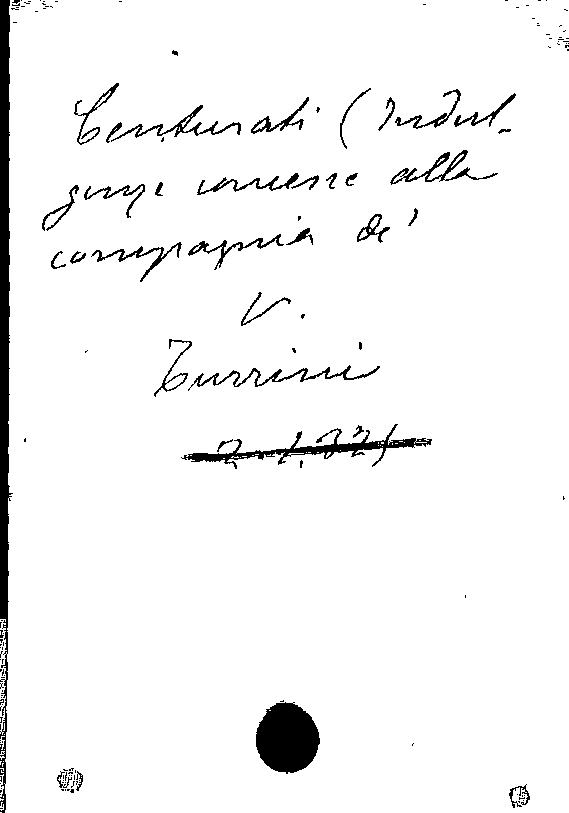 Centurati (Indul-
genze concesse alla
compagnia de'
V.
Turrini
2.1.321